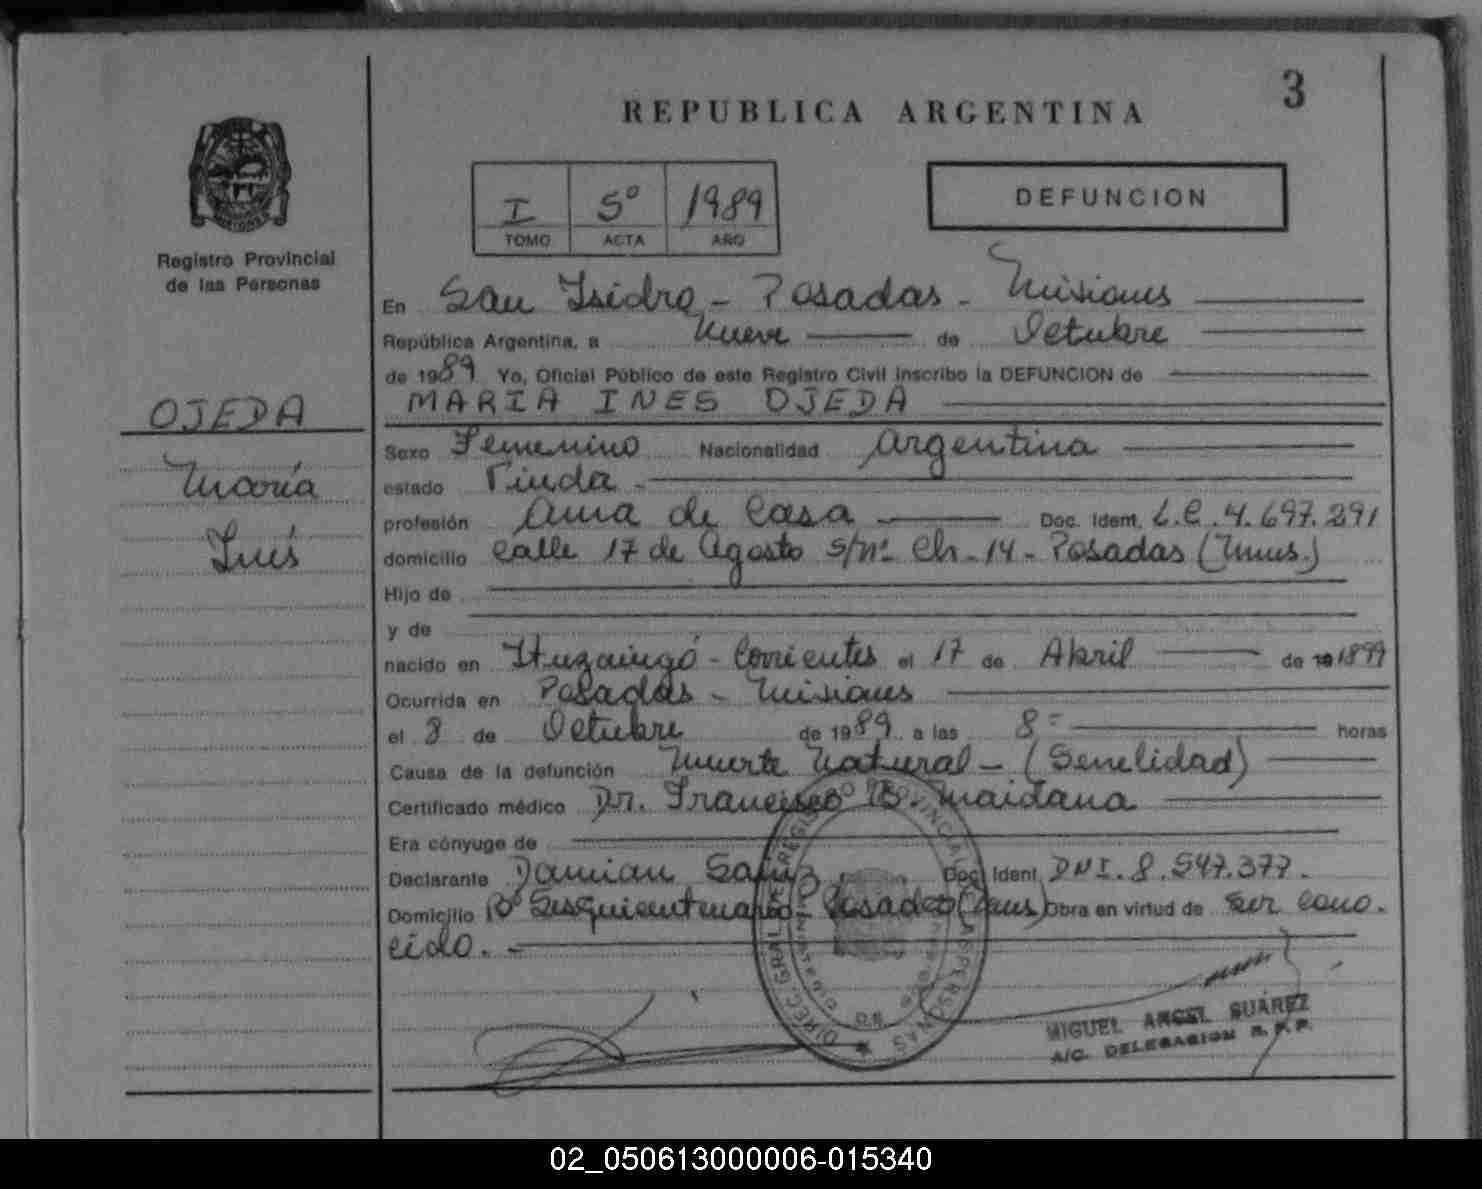 3
REPUBLICA ARGENTINA
I 5º 1989
TOMO ACTA AÑO
DEFUNCION
Registro Provincial
de las Personas
En San Isidro - Posadas - Misiones
República Argentina, a Nueve de Octubre
de 1989 Yo, Oficial Público de este Registro Civil Inscribo la DEFUNCION de
MARIA INES OJEDA
OJEDA
María
Inés
Sexo Femenino Nacionalidad Argentina
estado Viuda -
profesión Ama de Casa Doc. Ident. L.C. 4.697.291
domicilio Calle 17 de Agosto s/nº Ch-14 - Posadas (Mnes.)
Hijo de
y de
nacido en Ituzaingó - Corrientes el 17 de Abril de 19 1899
Ocurrida en Posadas - Misiones
el 8 de Octubre de 1989 a las 8 horas
Causa de la defunción Muerte Natural - (Senelidad)
Certificado médico Dr. Francisco B. Maidana
Era cónyuge de
Declarante Damian Doc. Ident. DNI. 8.547.377.
Domicilio Bº Sesquicentenario Posadas (Mnes) Obra en virtud de ser cono-
cido. -
DIREC. GRAL. DE REGISTRO PROVINCIAL DE LAS PERSONAS
MIGUEL ANGEL SUÁREZ
A/C. DELEGACION R. P. P.
02_050613000006-015340